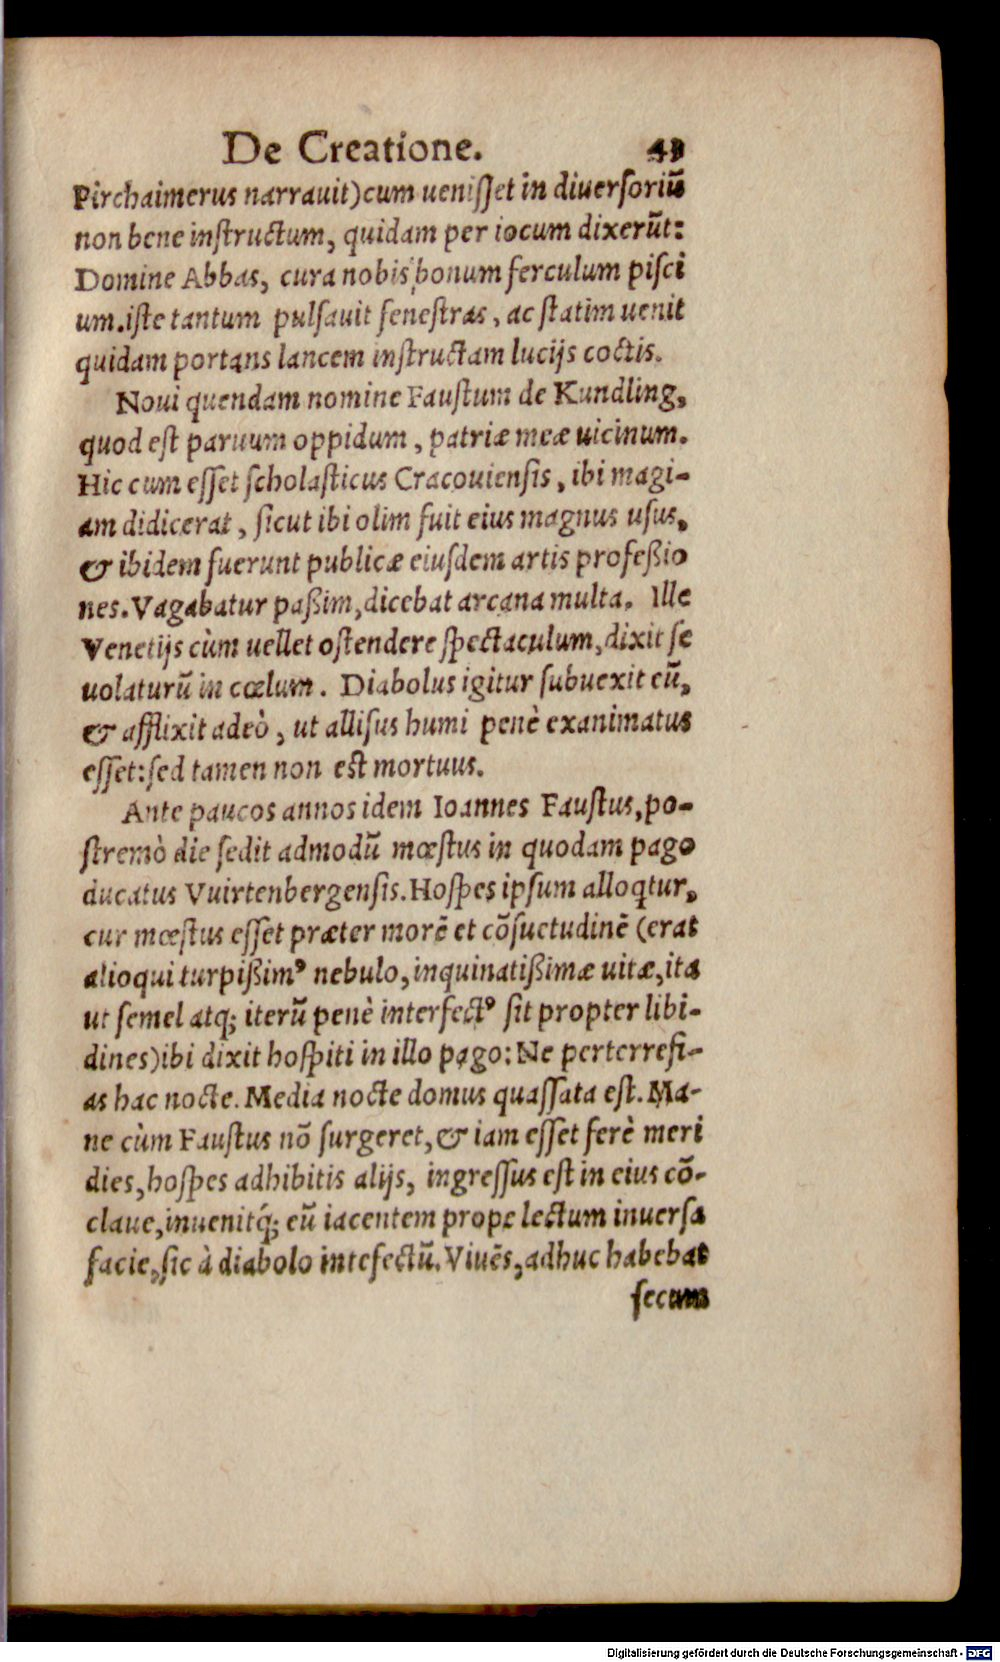 De Creatione. 43
Pirchaimerus narrauit) cum uenisset in diuersoriũ
non bene instructum, quidam per iocum dixerũt:
Domine Abbas, cura nobis bonum ferculum pisci
um. iste tantum pulsauit fenestras, ac statim uenit
quidam portans lancem instructam lucijs coctis.
Noui quendam nomine Faustum de Kundling,
quod est paruum oppidum, patriæ meæ uicinum.
Hic cum esset scholasticus Cracouiensis, ibi magi-
am didicerat, sicut ibi olim fuit eius magnus usus,
& ibidem fuerunt publicæ eiusdem artis profeßio
nes. Vagabatur paßim, dicebat arcana multa. Ille
Venetijs cùm uellet ostendere spectaculum, dixit se
uolaturũ in cœlum. Diabolus igitur subuexit eũ,
& afflixit adeò, ut allisus humi penè exanimatus
esset: sed tamen non est mortuus.
Ante paucos annos idem Ioannes Faustus, po-
stremò die sedit admodũ mœstus in quodam pago
ducatus Vuirtenbergensis. Hospes ipsum alloqtur,
cur mœstus esset præter morẽ et cõsuetudinẽ (erat
alioqui turpißimꝰ nebulo, inquinatißimæ uitæ, ita
ut semel atq; iterũ penè interfectꝰ sit propter libi-
dines) ibi dixit hospiti in illo pago: Ne perterrefi-
as hac nocte. Media nocte domus quassata est. Ma-
ne cùm Faustus nõ surgeret, & iam esset ferè meri
dies, hospes adhibitis alijs, ingressus est in eius cõ-
claue, inuenitq́; eũ iacentem prope lectum inuersa
facie, sic à diabolo intefectũ. Viuẽs, adhuc habebat
secum
Digitalisierung gefördert durch die Deutsche Forschungsgemeinschaft - DFG